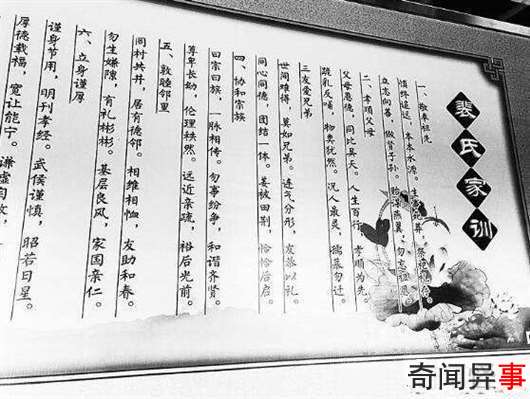 裴氏家训
一、敬奉祖先
慎终追远，木本水源。生事死葬，
立志向善，做贤子孙。贻谋燕翼，勿忘祖恩。
二、孝顺父母
父母恩德，同比昊天。人生百行，孝顺为先。
跪乳反哺，物类犹然。况人最灵，孺慕勿迁。
三友爱兄弟
世间难得，莫如兄弟。连气分形，友恭以礼。
同心同德，团结一体。姜被田荆，怡怡后启。
四、协和宗族
曰宗曰族，一脉相传。勿事纷争，和谐齐贤。
尊卑长幼，伦理秩然。远近亲疏，裕后光前。
五、敦睦邻里
同村共井，居有德邻。相维相恤，友助和春。
勿生嫌隙，有礼彬彬。基层良风，家国亲仁。
六、立身谨厚
谨身节用，明刊孝经。武侯谨慎，昭若日星。
厚德载福，宽让能宁。谦虚自牧，
奇闻异事